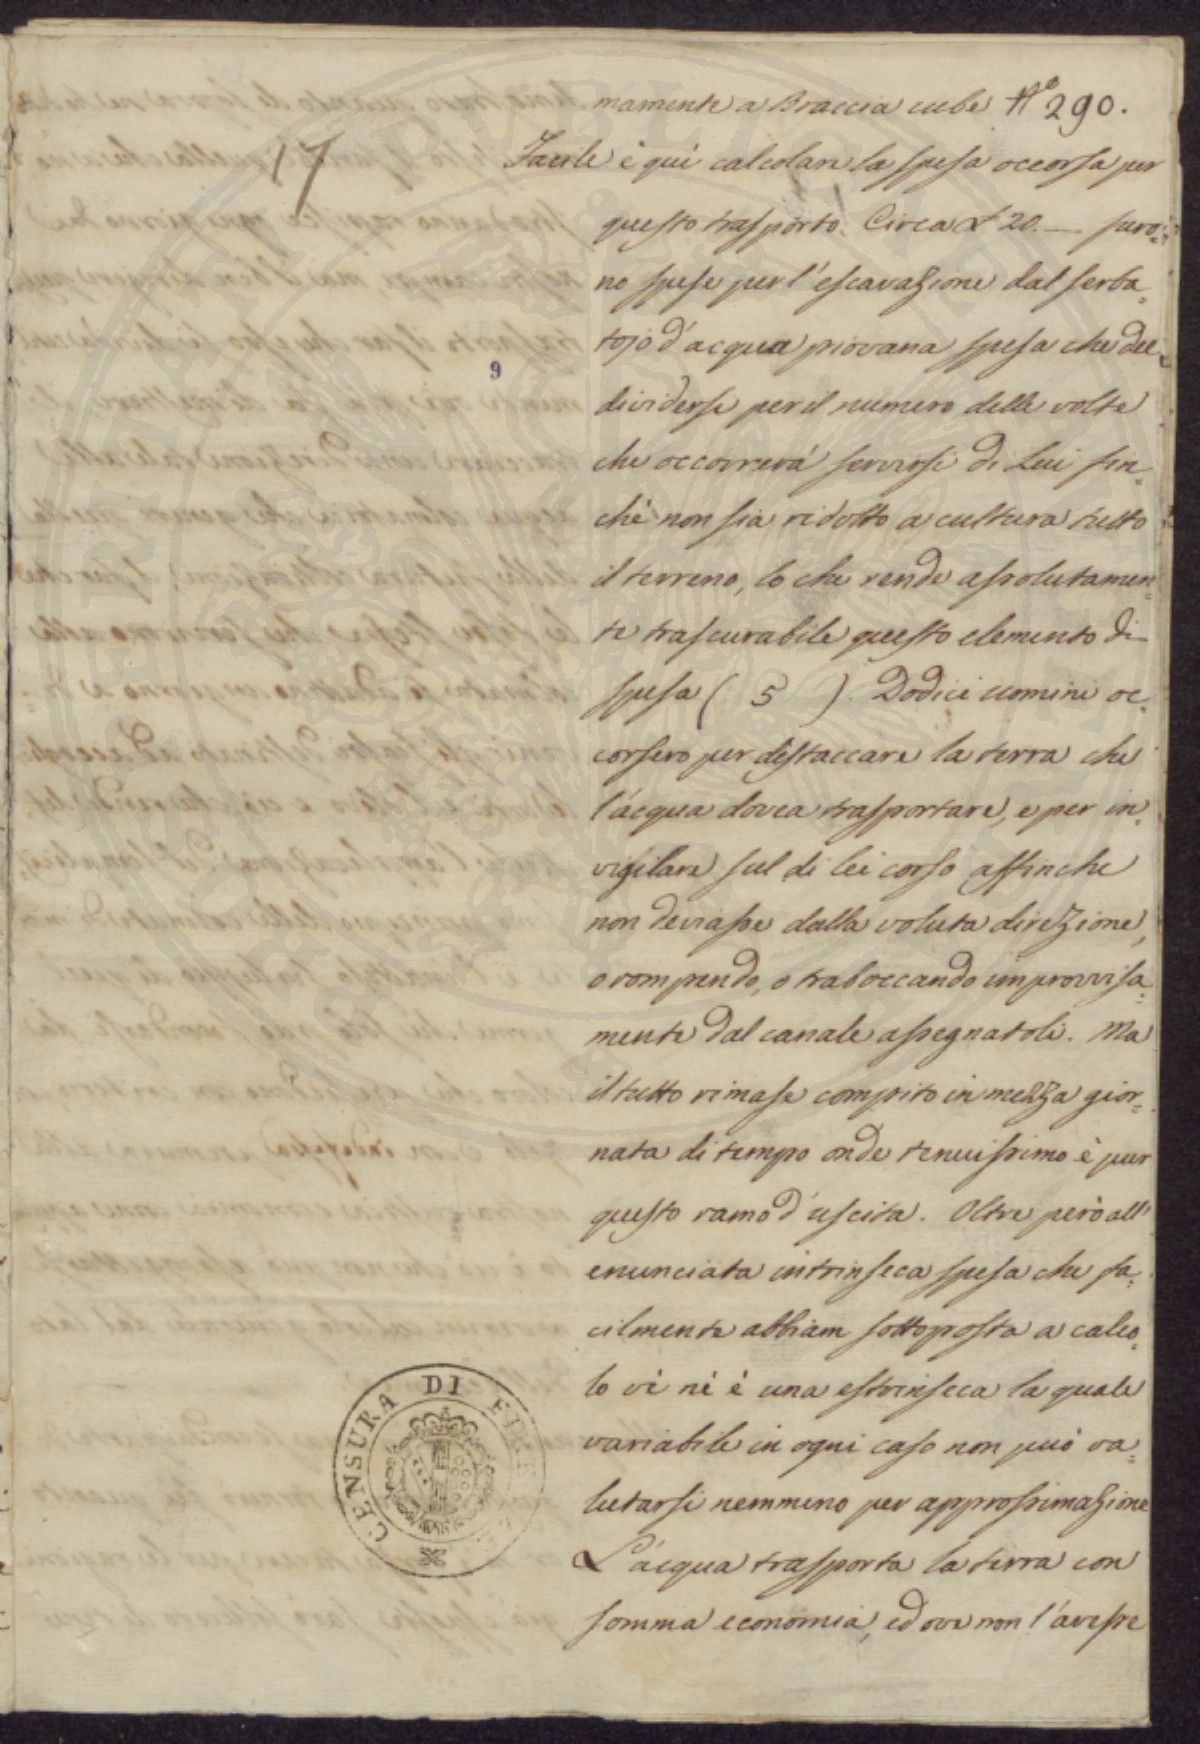 mamente a Braccia cube N° 290.
17
Facile è quì calcolare la spesa occorsa per
questo trasporto. Circa £ 20. — furo=
no spese per l'escavazione dal serba=
tojo d'acqua piovana spesa che dee
9
dividersi per il numero delle volte
che occorrerà servirsi di Lui fin=
chè non sia ridotto a cultura tutto
il terreno, lo che rende assolutamen=
te trascurabile questo elemento di
spesa ( 5 ). Dodici uomini oc=
corsero per distaccare la terra che
l'acqua dovea trasportare, e per in=
vigilare sul di lei corso affinche
non deviasse dalla voluta direzione,
o rompendo, o traboccando improvvisa=
mente dal canale assegnatole. Ma
il tutto rimase compito in mezza gior=
nata di tempo onde tenuissimo è pur
questo ramo d'uscita. Oltre però all'
enunciata intrinseca spesa che fa=
cilmente abbiam sottoposta a calco=
lo vi nè è una estrinseca la quale
variabile in ogni caso non può va=
lutarsi nemmeno per approssimazione
L'acqua trasporta la terra con
somma economia, ed ove non l'avesse
CENSURA DI